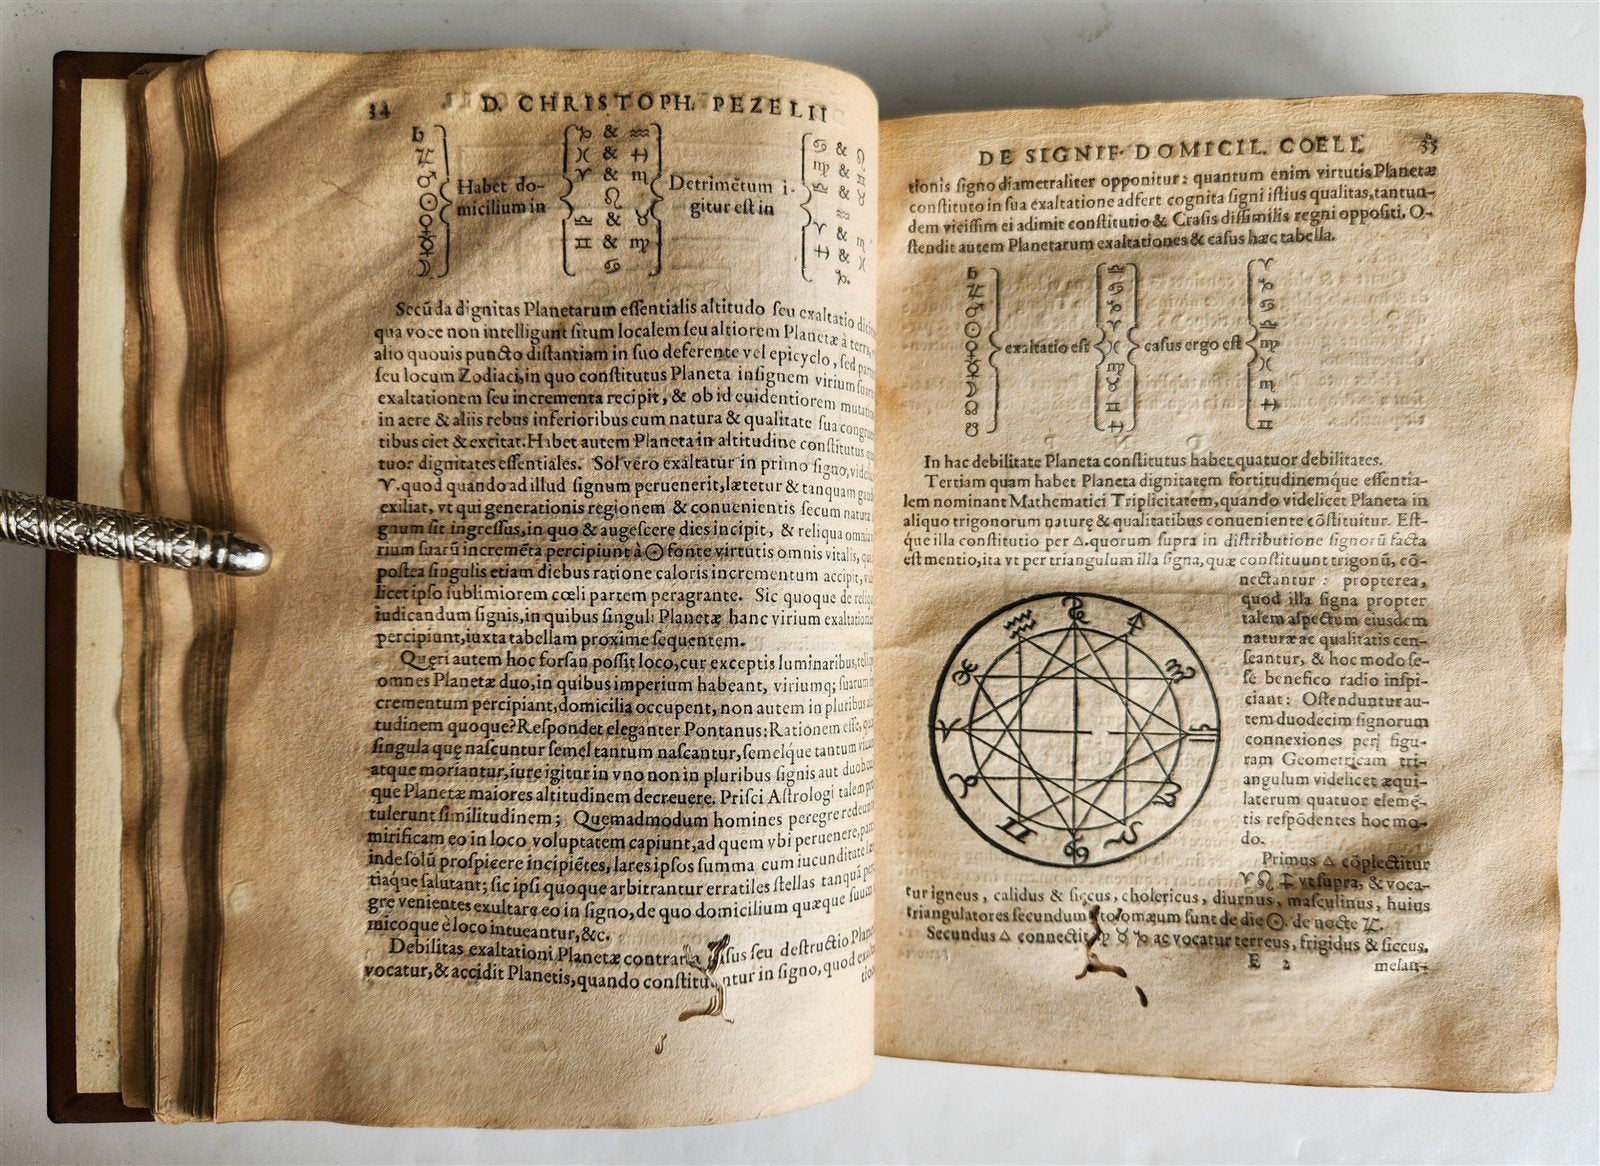 34 D. CHRISTOPH. PEZELII
♄ ♃ ♂ ☉ ♀ ☿ ☽
Habet do-
micilium in
♑ & ♒
♓ & ♐
♈ & ♏
♌
♎ & ♉
♊ & ♍
♋
Detrimētum i-
gitur est in
♋ & ♌
♍ & ♊
♎ & ♉
♒
♈ & ♏
♐ & ♓
♑.
Secūda dignitas Planetarum essentialis altitudo seu exaltatio
qua voce non intelligunt situm localem seu altiorem Planetæ à terra,
alio quouis puncto distantiam in suo deferente vel epicyclo, sed
seu locum Zodiaci, in quo constitutus Planeta insignem virium
exaltationem seu incrementa recipit, & ob id euidentiorem
in aere & aliis rebus inferioribus cum natura & qualitate sua
tibus ciet & excitat. Habet autem Planeta in altitudine constitutus
tuor dignitates essentiales. Sol vero exaltatur in primo signo,
♈. quod quando ad illud signum peruenerit, lætetur & tanquam
exiliat, vt qui generationis regionem & conuenientis secum
gnum sit ingressus, in quo & augescere dies incipit, & reliqua
rium suarū incremēta percipiunt à ☉ fonte virtutis omnis vitalis,
postea singulis etiam diebus ratione caloris incrementum accipit,
licet ipso sublimiorem cœli partem peragrante. Sic quoque de
iudicandum signis, in quibus singuli Planetæ hanc virium
percipiunt, iuxta tabellam proxime sequentem.
Queri autem hoc forsan possit loco, cur exceptis luminaribus,
omnes Planetæ duo, in quibus imperium habeant, viriumq; suarum
crementum percipiant, domicilia occupent, non autem in pluribus
tudinem quoque? Respondet eleganter Pontanus: Rationem esse,
singula quę nascuntur semel tantum nascantur, semelque tantum
atque moriantur, iure igitur in vno non in pluribus signis aut
que Planetæ maiores altitudinem decreuere. Prisci Astrologi talem
tulerunt similitudinem; Quemadmodum homines peregre
mirificam eo in loco voluptatem capiunt, ad quem vbi peruenere,
inde solū prospicere incipiētes, lares ipsos summa cum iucunditate
tiaque salutant; sic ipsi quoque arbitrantur erratiles stellas tanquā
gre venientes exultare eo in signo, de quo domicilium quæque suum
micoque è loco intueantur, &c.
Debilitas exaltationi Planetæ contraria seu destructio
vocatur, & accidit Planetis, quando in signo, quod
tio-
DE SIGNIF. DOMICIL. COELI. 35
tionis signo diametraliter opponitur: quantum enim virtutis Planetæ
constituto in sua exaltatione adfert cognita signi istius qualitas, tantun-
dem vicissim ei adimit constitutio & Crasis dissimilis regni oppositi. O-
stendit autem Planetarum exaltationes & casus hæc tabella.
♄ ♃ ♂ ☉ ♀ ☿ ☽ ☊ ☋
exaltatio est
♎ ♋ ♑ ♈ ♓ ♍ ♉ ♊ ♐
casus ergo est
♈ ♑ ♋ ♎ ♍ ♓ ♏ ♐ ♊
In hac debilitate Planeta constitutus habet quatuor debilitates.
Tertiam quam habet Planeta dignitatem fortitudinemque essentia-
lem nominant Mathematici Triplicitatem, quando videlicet Planeta in
aliquo trigonorum naturę & qualitatibus conueniente cōstituitur. Est-
que illa constitutio per △. quorum supra in distributione signorū facta
est mentio, ita vt per triangulum illa signa, quæ constituunt trigonū, cō-
nectantur : propterea,
quod illa signa propter
talem aspectum eiusdem
naturæ ac qualitatis cen-
seantur, & hoc modo se-
se benefico radio inspi-
ciant: Ostenduntur au-
tem duodecim signorum
connexiones per figu-
ram Geometricam tri-
angulum videlicet æqui-
laterum quatuor elemē-
tis respōdentes hoc mo-
do.
♑ ♐ ♏ ♎ ♍ ♌ ♋ ♊ ♉ ♈ ♓ ♒
Primus △ cōplectitur
♈ ♌ ♐ vt supra, & voca-
tur igneus, calidus & siccus, cholericus, diurnus, masculinus, huius
triangulatores secundum sunt de die ☉. de nocte ♃.
Secundus △ connectit ♍ ♉ ♑ ac vocatur terreus, frigidus & siccus,
E 2 melan-